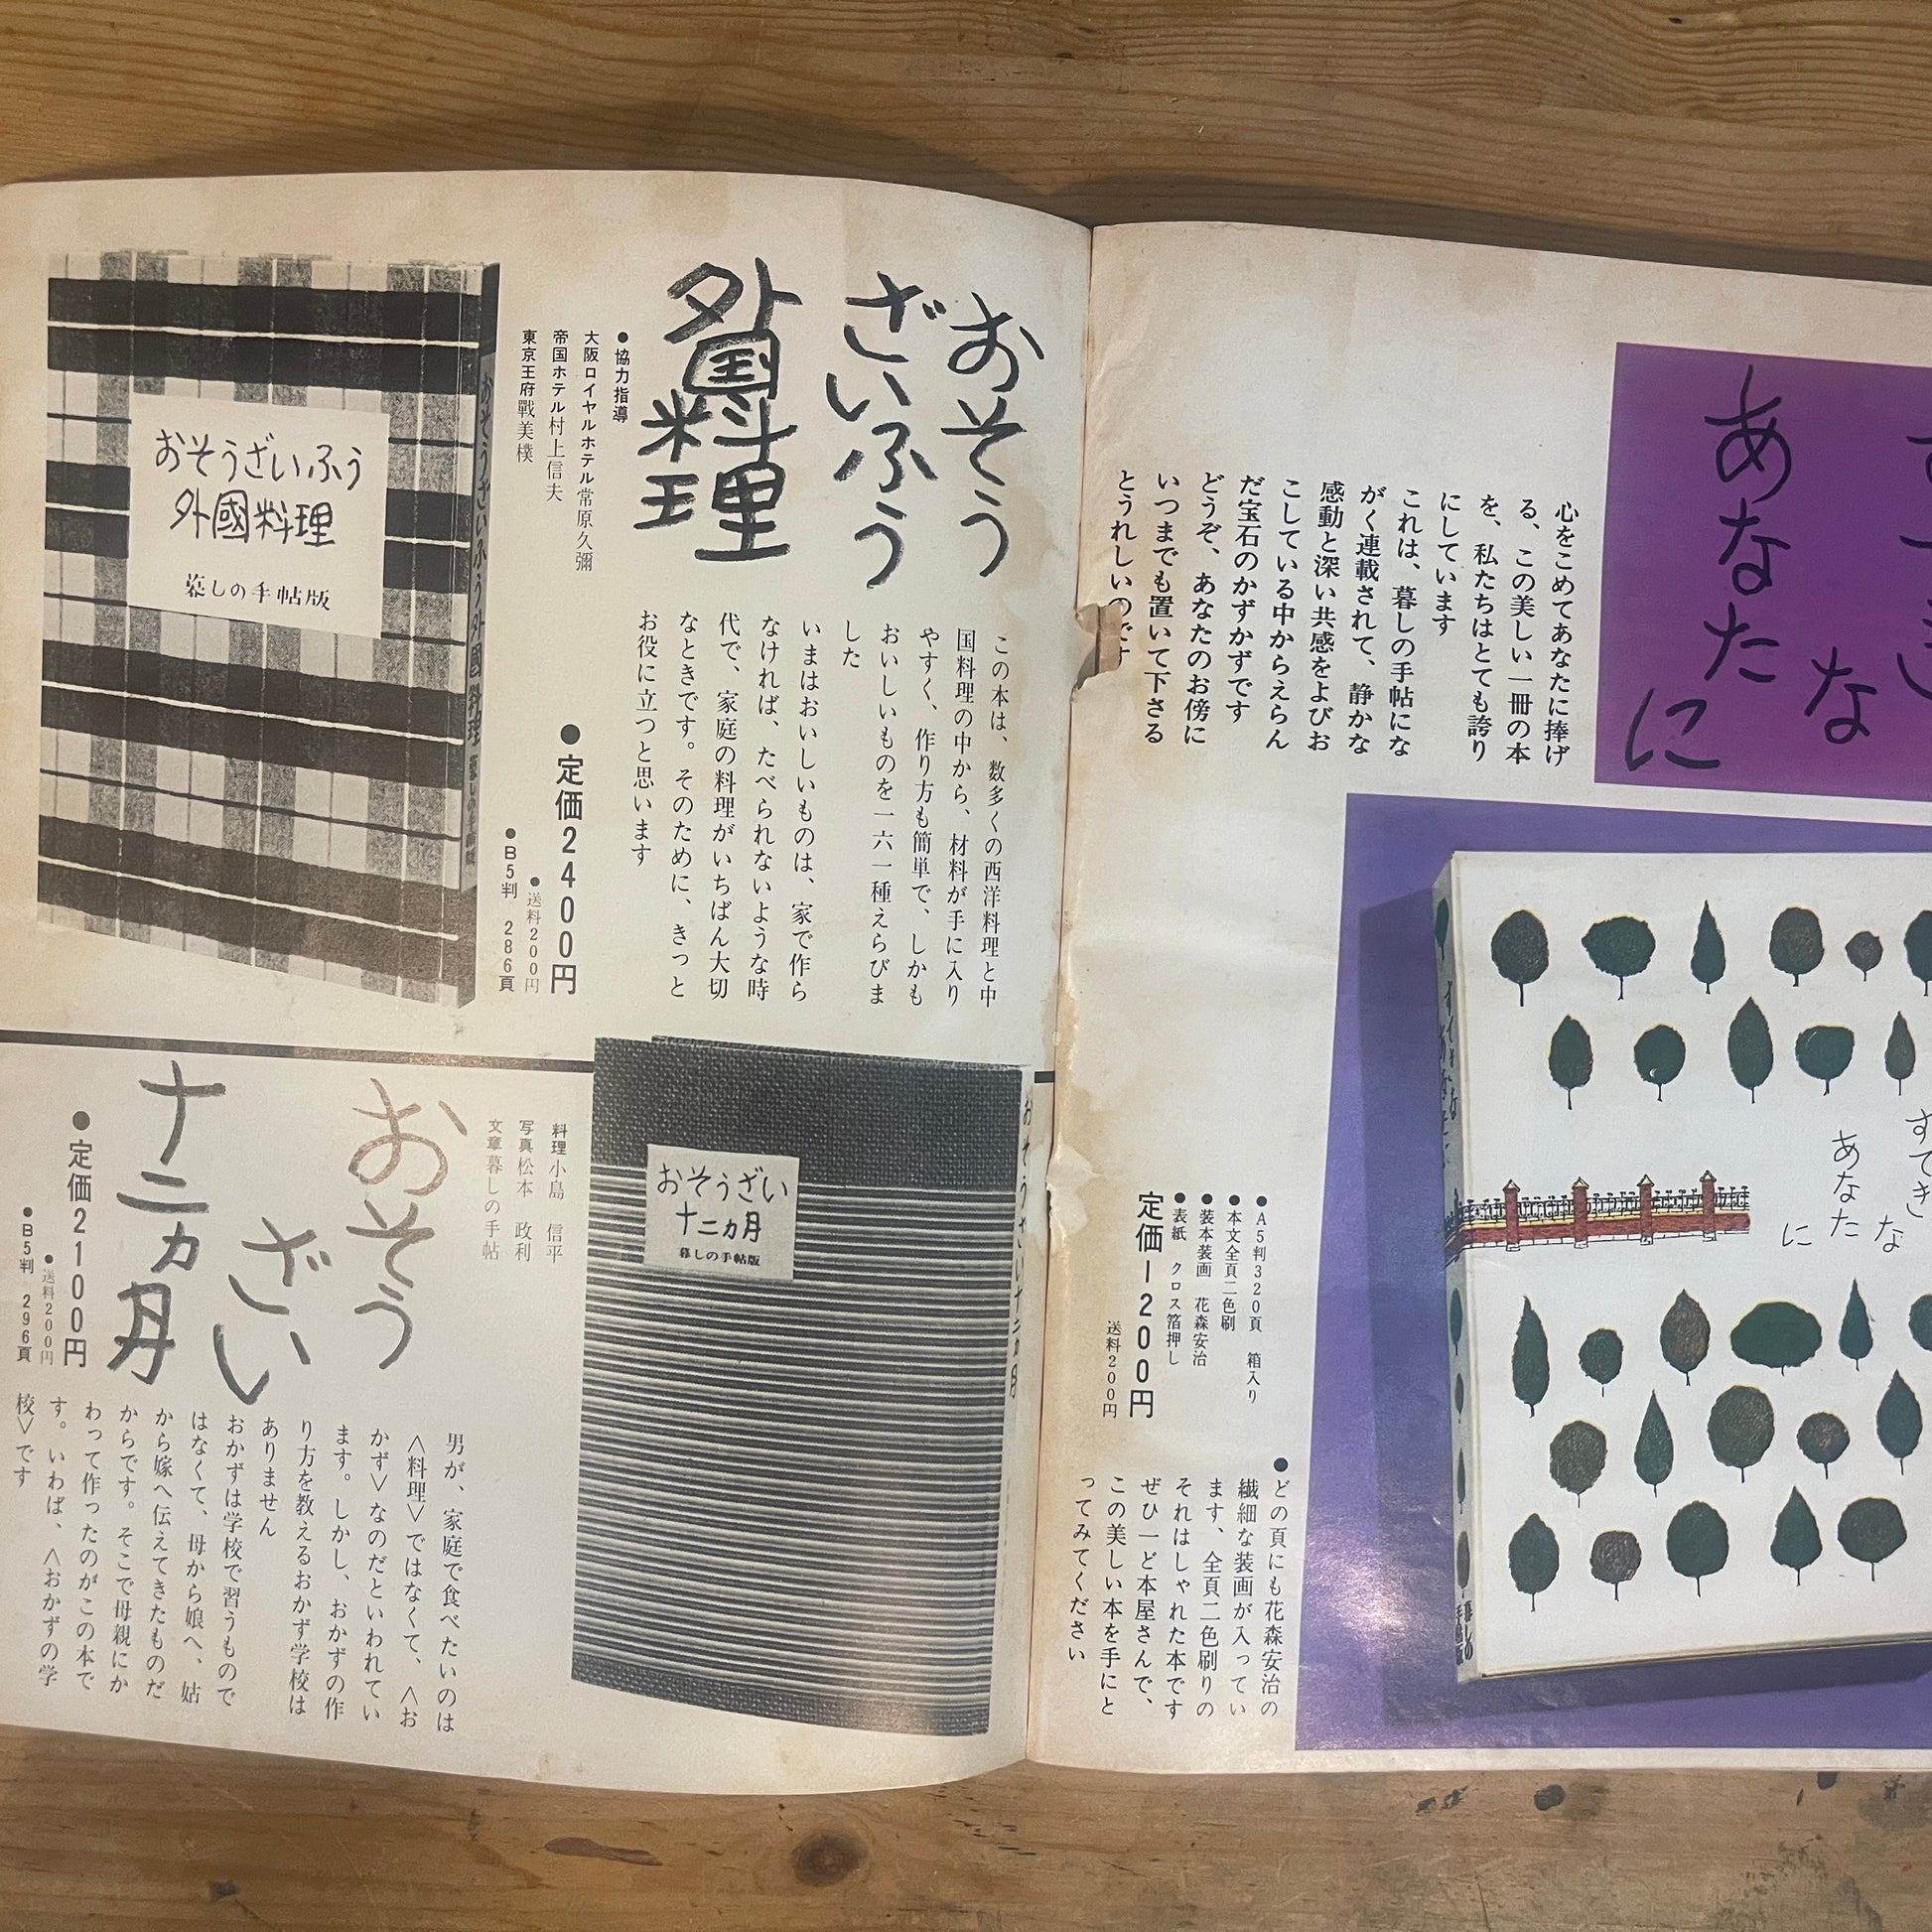 あなた
な
に
心をこめてあなたに捧げ
る、この美しい一冊の本
を、私たちはとても誇り
にしています
これは、暮しの手帖にな
がく連載されて、静かな
感動と深い共感をよびお
こしている中からえらん
だ宝石のかずかずです
どうぞ、あなたのお傍に
いつまでも置いて下さる
とうれしいのです
すてき
な
あなた
に
●A5判320頁 箱入り
●本文全頁二色刷
●装本装画 花森安治
●表紙 クロス箔押し
定価1200円
送料200円
●どの頁にも花森安治の
繊細な装画が入ってい
ます、全頁二色刷りの
それはしゃれた本です
ぜひ一ど本屋さんで、
この美しい本を手にと
ってみてください
おそう
ざいふう
外国料理
●協力指導
大阪ロイヤルホテル常原久彌
帝国ホテル村上信夫
東京王府戰美樸
この本は、数多くの西洋料理と中
国料理の中から、材料が手に入り
やすく、作り方も簡単で、しかも
おいしいものを一六一種えらびま
した
いまはおいしいものは、家で作ら
なければ、たべられないような時
代で、家庭の料理がいちばん大切
なときです。そのために、きっと
お役に立つと思います
●定価2400円
●送料200円
●B5判 286頁
おそうざいふう外國料理 暮しの手帖版
おそうざいふう
外國料理
暮しの手帖版
おそうざい十二カ月
おそうざい
十二カ月
暮しの手帖版
料理小島 信平
写真松本 政利
文章暮しの手帖
おそう
ざい
十二ヵ月
●定価2100円
●送料200円
●B5判 296頁
男が、家庭で食べたいのは
＜料理＞ではなくて、＜お
かず＞なのだといわれてい
ます。しかし、おかずの作
り方を教えるおかず学校は
ありません
おかずは学校で習うもので
はなくて、母から娘へ、姑
から嫁へ伝えてきたものだ
からです。そこで母親にか
わって作ったのがこの本で
す。いわば、＜おかずの学
校＞です